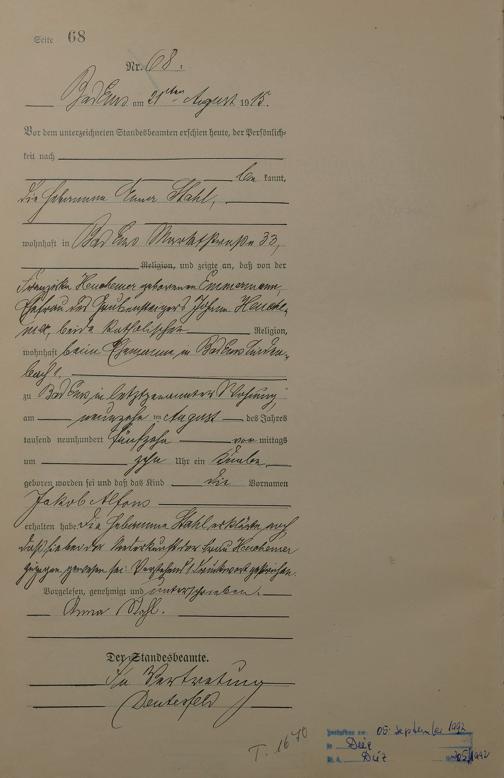 Seite 68
Nr. 68.
Bad Ems am 21ten August 1915.
Vor dem unterzeichneten Standesbeamten erschien heute, der Persönlich-
keit nach
be kannt,
die Hebamme Anna Stahl,
wohnhaft in Bad Ems Marktstraße 33,
Religion, und zeigte an, daß von der
Franziska geborenen Emmermann,
Ehefrau des Grubensteigers Johann
beide katholischer Religion,
wohnhaft beim Ehemanne in Bad Ems
bach,
zu Bad Ems in letztgenannter Wohnung
am neunzehn ten August des Jahres
tausend neunhundert fünfzehn vor mittags
um zehn Uhr ein Knabe
geboren worden sei und daß das Kind die Vornamen
Jakob Alfons
erhalten habe. Die Hebamme Stahl erklärte noch
daß sie bei der Niederkunft der Frau
zugegen gewesen sei. Druckwort gestrichen.
Vorgelesen, genehmigt und unterschrieben.
Anna Stahl.
Der Standesbeamte.
In Vertretung
T. 1670
05. September 1992
in Diez
Diez 1992